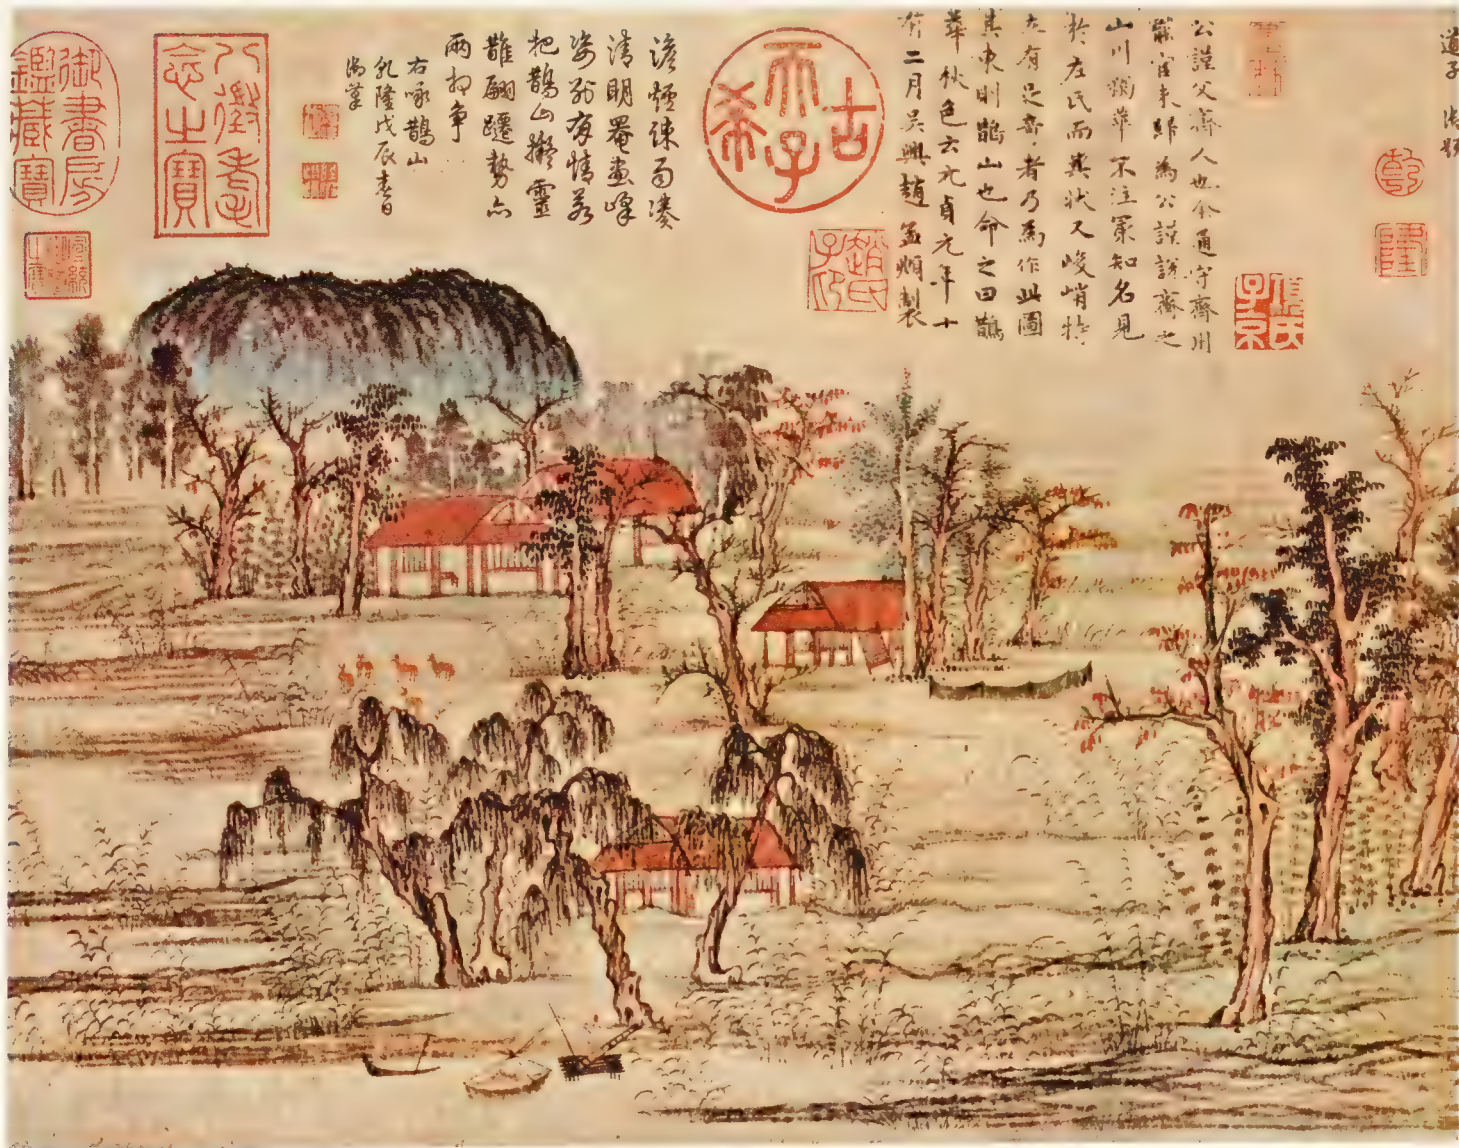 公謹父齊人也余通守齊州
罷官來歸為公謹說齊之
山川獨華不注最知名見
於左氏而其狀又峻峭特
立有足奇者乃為作此圖
其東則鵲山也命之曰鵲
華秋色云元貞元年十
有二月吳興趙孟頫製
項氏子京
乾
隆
趙氏子昂
古希天子
澹煙疎雨湊
清明罨畫峰
姿別有情若
把鵲山擬靈
䧿翩躚勢亦
兩相爭
右咏鵲山
乾隆戊辰春日
御筆
八徵耄念之寶
御書房鑑藏寶